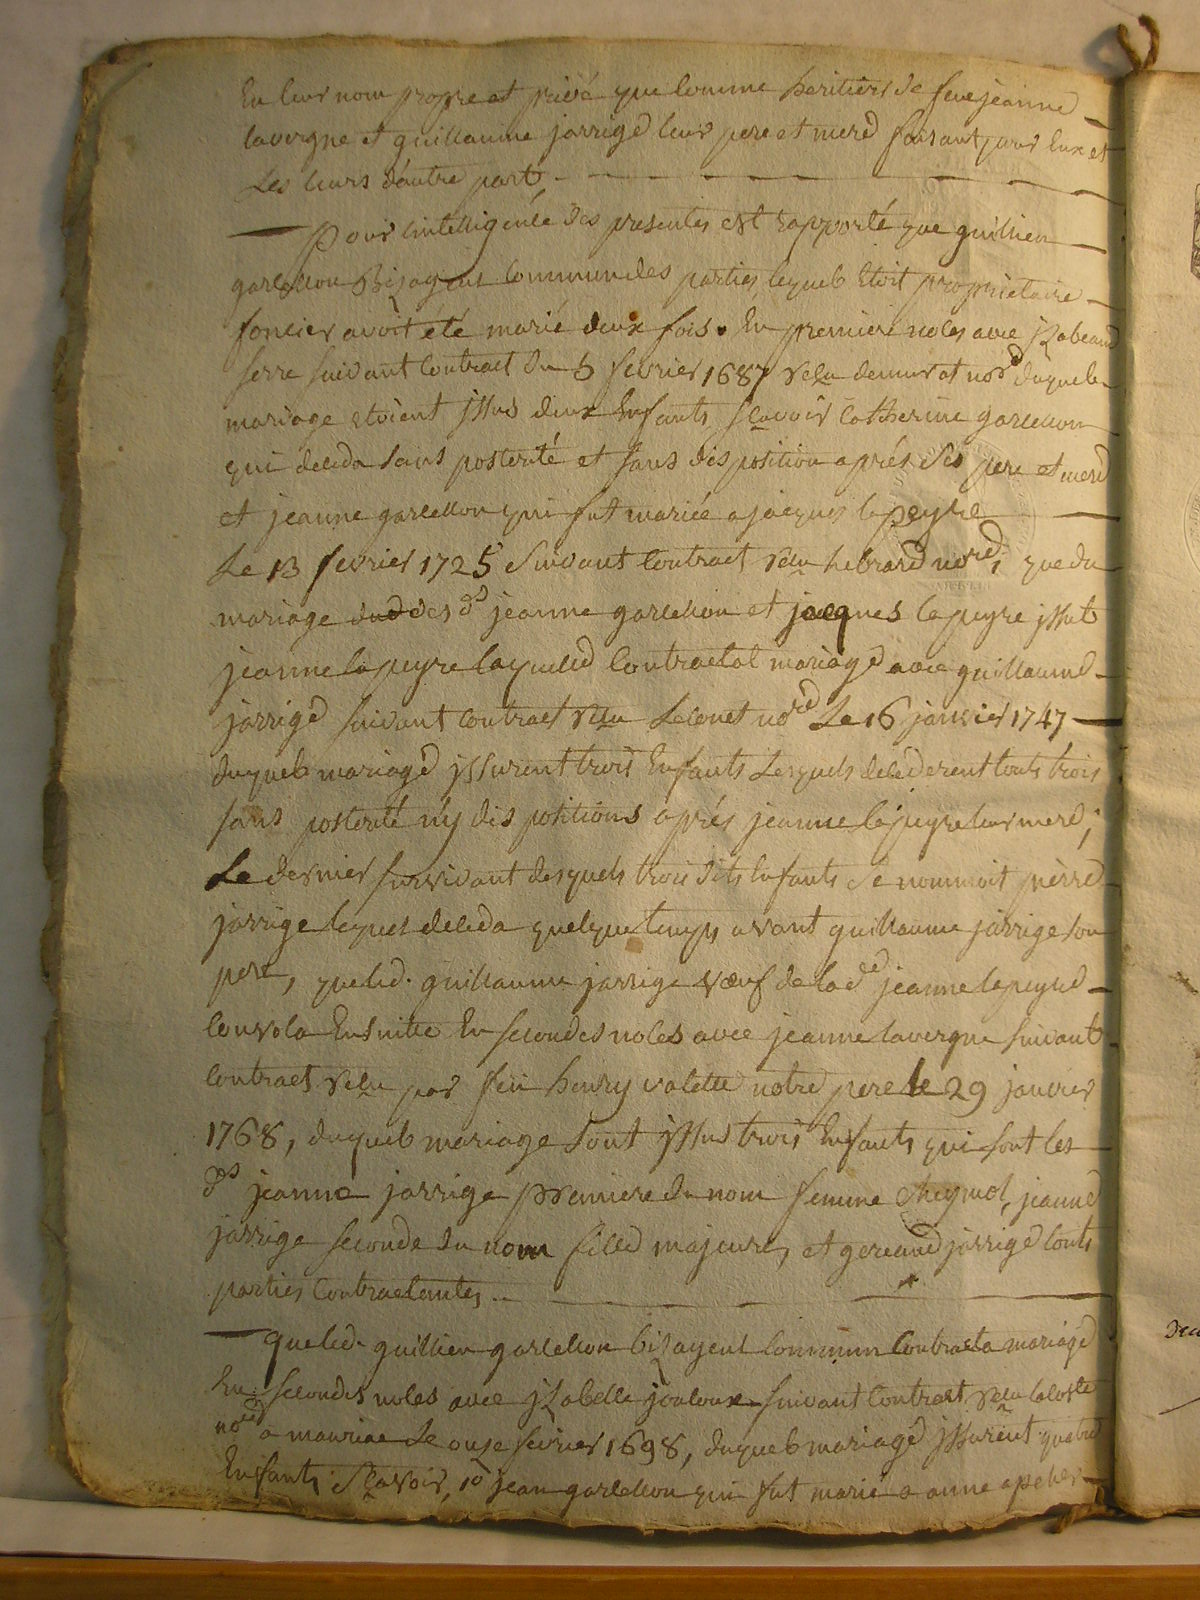 En leur nom propre et privé que comme heritiers de feue jeanne
lavergne et guillaume jarrige leur pere et mere faisant pour Eux et
Les leurs d'autre part,
Pour lintelligence des presentes est rapporté que guillien
garcellon Bisayeul commun des parties, lequel Etoit proprietaire
foncier avoit eté marié deux fois. En premiere noces avec jzabeau
serre suivant contract du 5 fevrier 1687 recu demurat nore duquel
mariage etoient jssus deux Enfants, sçavoir catherine garcellon
qui deceda sans posterité et sans disposition aprés ses pere et mere
et jeanne garcellon qui fut mariée a jacques lapeyre
Le 13 fevrier 1725 suivant contract recu hebrard nore, que du
mariage desdes jeanne garcellon et jacques lapeyre jssut
jeanne lapeyre laquelle contractat mariage avec guillaume
jarrige suivant contract recu Leconet nore Le 16 janvier 1747
duquel mariage jssurent trois Enfants Lesquels decederent touts trois
sans posterité n'y dispositions aprés jeanne lapeyre leur mere;
Le dernier survivant desquels trois dits Enfants se nommoit pierre
jarrige lequel deceda quelque temps avant guillaume jarrige son
pere, que led. guillaume jarrige veuf de lade jeanne lapeyre
convola Ensuitte En secondes noces avec jeanne lavergne suivant
contract recu par feu henry valette notre pere le 29 janvier
1768, duquel mariage sont jssus trois Enfants qui sont les
ds jeanne jarrige premiere du nom femme cheymol, jeanne
jarrige seconde du nom fille majeure, et gereaud jarrige touts
parties contractantes.
que led. guillien garcellon bisayeul commun contracta mariage
En secondes noces avec jzabelle jouloux suivant contract recu lacoste
nore a mauriac Le onze fevrier 1698, duquel mariage jssurent quatre
Enfants sçavoir, 1o jean garcellon qui fut marié a anne apcher